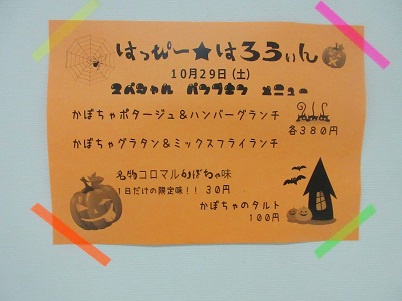 はっぴー★はろうぃん
10月29日(土)
スペシャル パンプキン メニュー
かぼちゃポタージュ&ハンバーグランチ
各380円
かぼちゃグラタン&ミックスフライランチ
名物コロマルかぼちゃ味
1日だけの限定味!! 30円
かぼちゃのタルト
100円